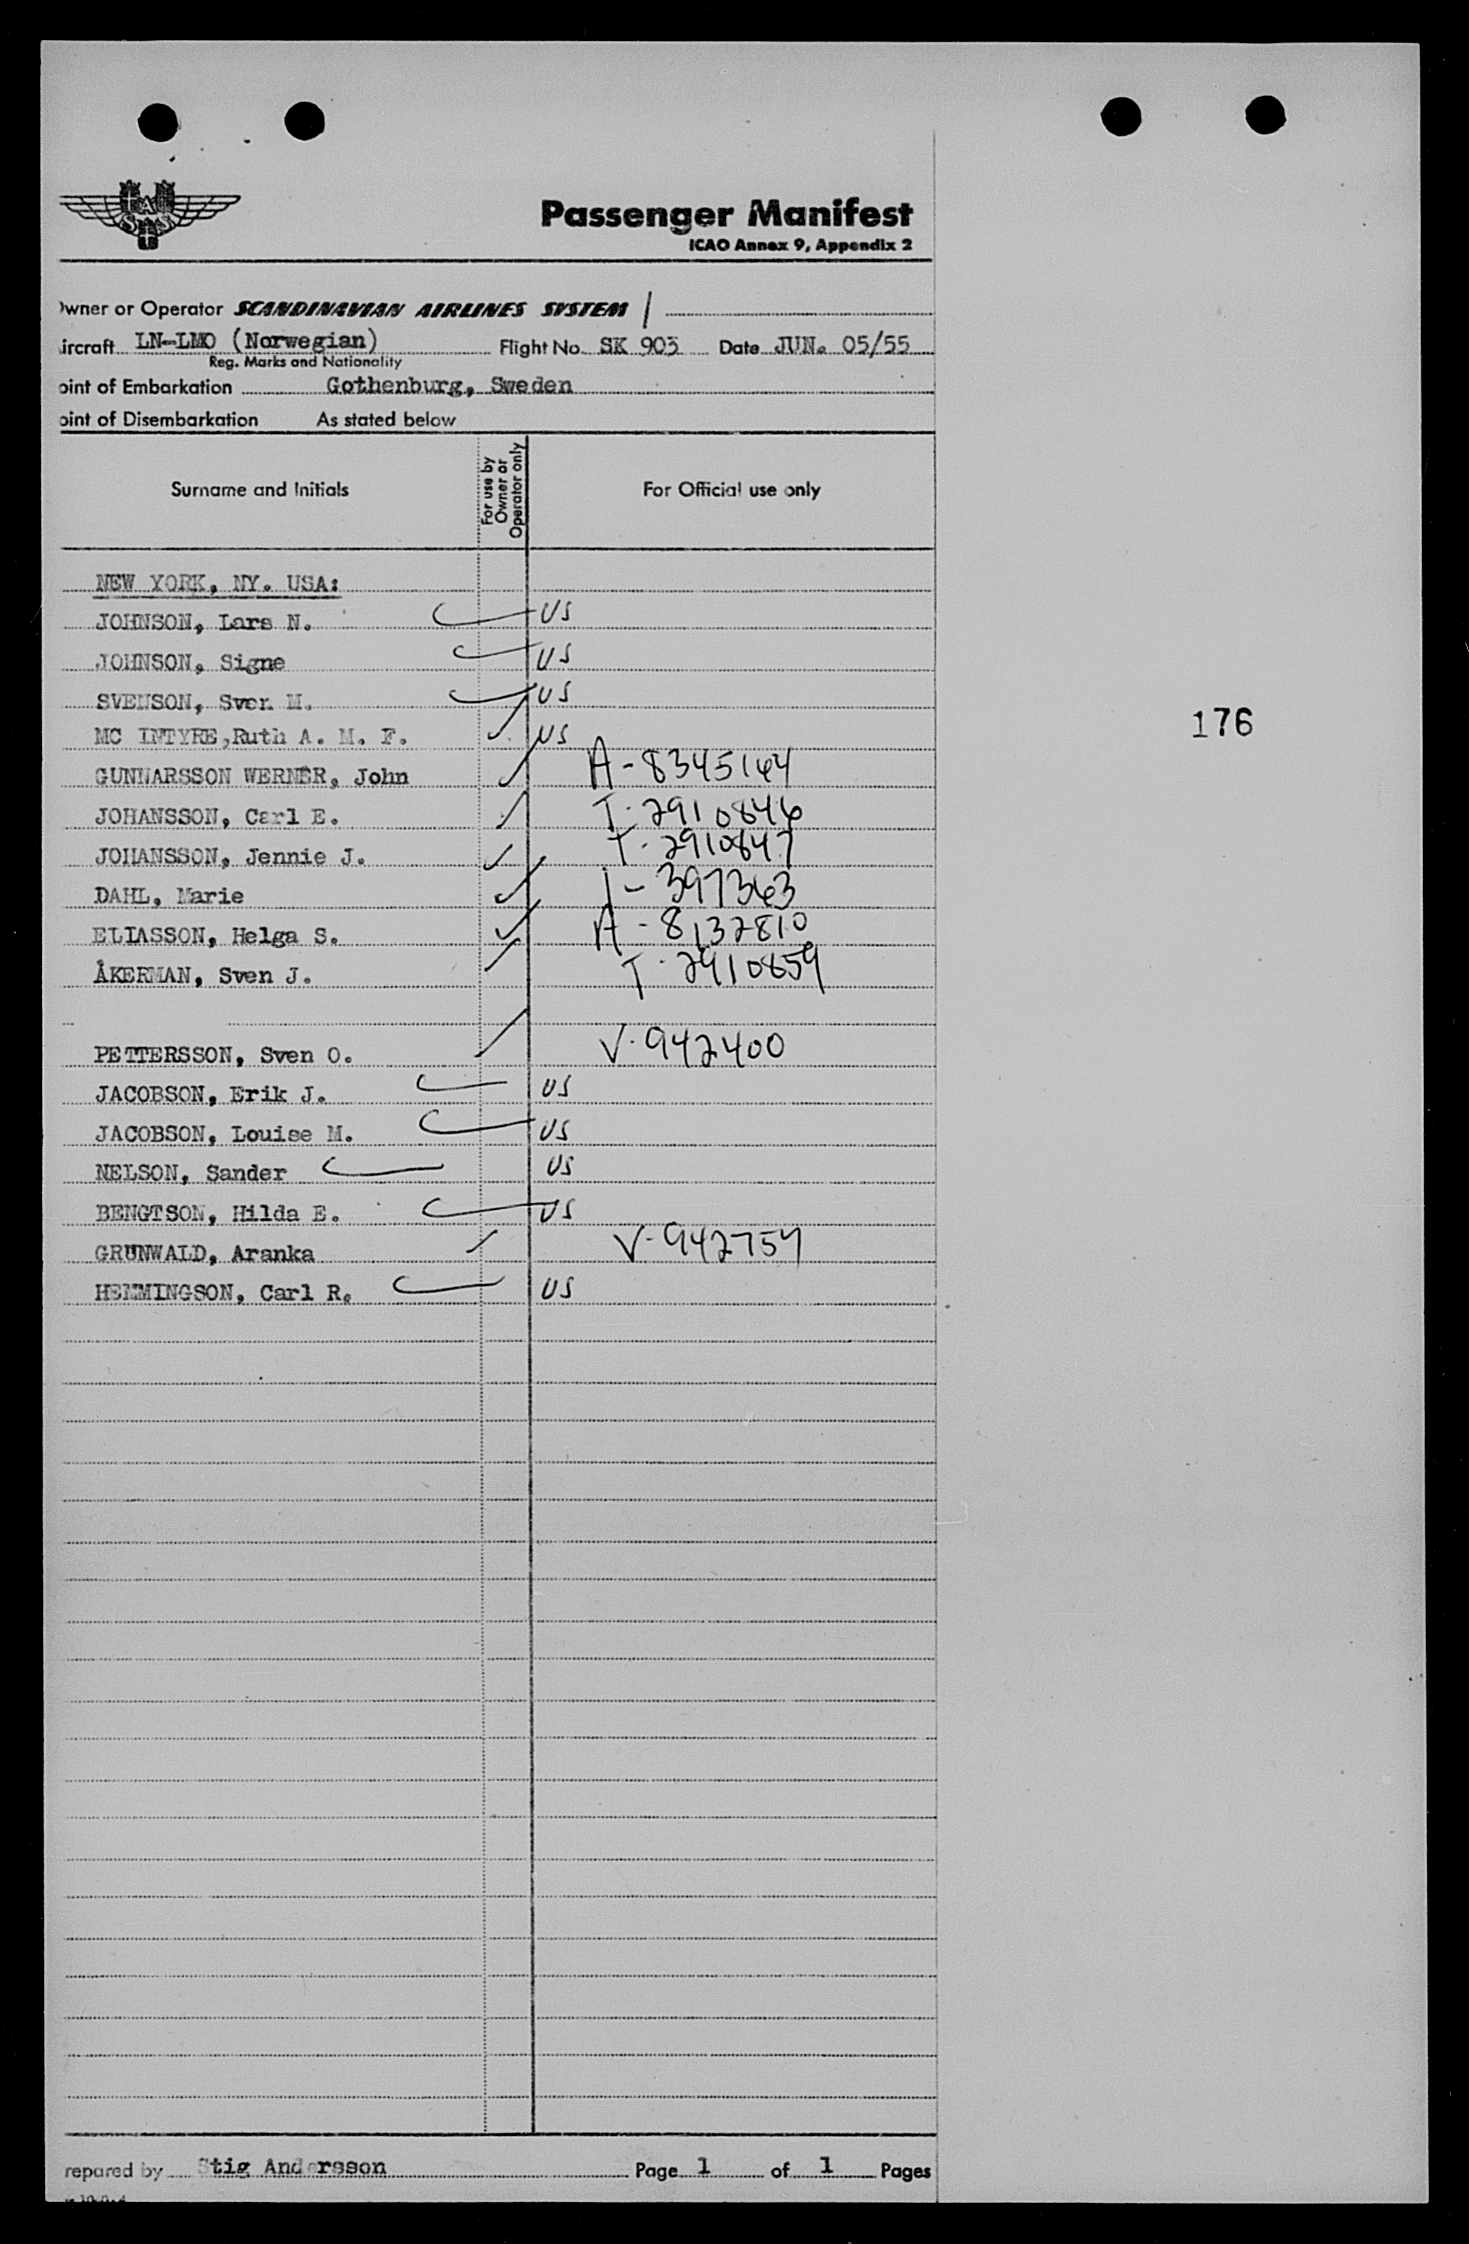 Passenger Manifest
ICAO Annex 9, Appendix 2
wner or Operator SCANDINAVIAN AIRLINES SYSTEM
ircraft LN-LMO (Norwegian) Flight No. SK 903 Date JUN. 05/55
Reg. Marks and Nationality
oint of Embarkation Gothenburg, Sweden
oint of Disembarkation As stated below
Surname and Initials For use by Owner or Operator only For Official use only
NEW YORK, NY. USA:
JOHNSON, Lars N. US
JOHNSON, Signe US
SVENSON, Sven M. US
176
MC INTYRE,Ruth A. M. F. US
GUNNARSSON WERNER, John A-8345144
JOHANSSON, Carl E. T-2910846
JOHANSSON, Jennie J. T-2910847
DAHL, Marie I-397363
ELIASSON, Helga S. A-8132810
ÅKERMAN, Sven J. T-2910859
PETTERSSON, Sven O. V-942400
JACOBSON, Erik J. US
JACOBSON, Louise M. US
NELSON, Sander US
BENGTSON, Hilda E. US
GRUNWALD, Aranka V-942759
HEMMINGSON, Carl R. US
repared by Stig Andersson Page 1 of 1 Pages